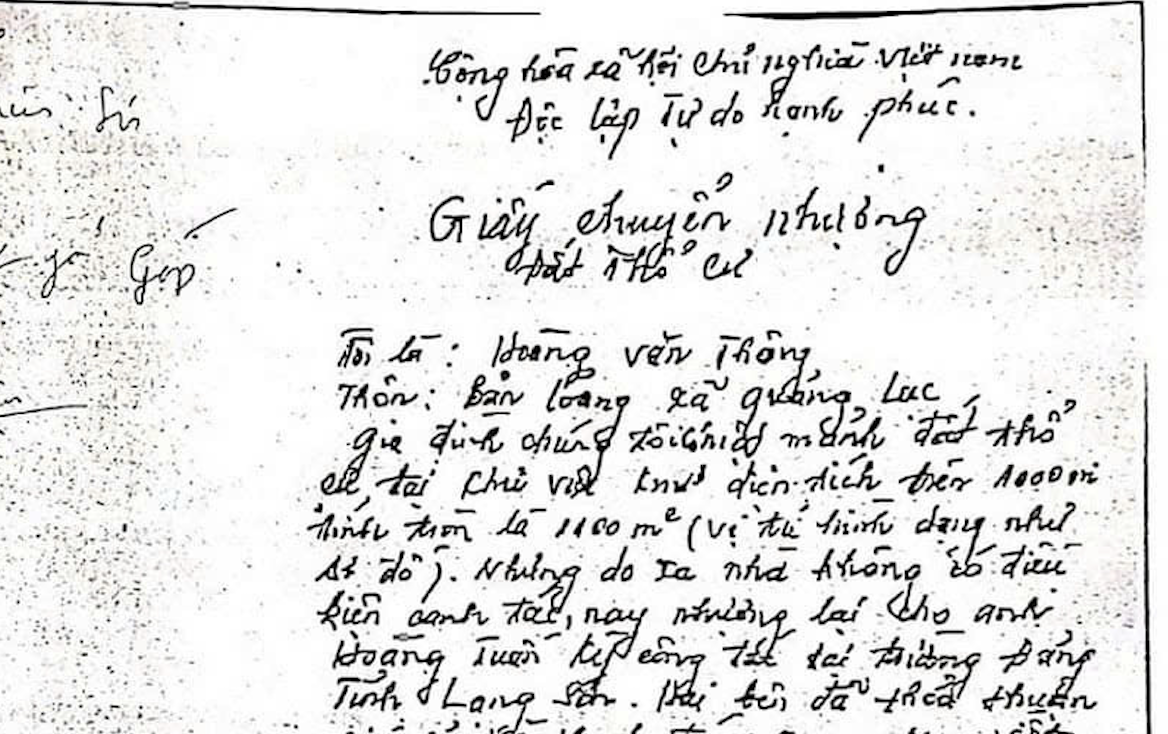 Cộng hòa xã hội chủ nghĩa Việt nam
Độc lập Tự do hạnh phúc.
Giấy chuyển nhượng
Đất Thổ cư
Tôi là : Hoàng văn Thông
Thôn: Bản loỏng xã quảng Lạc
gia đình chúng tôi có mảnh đất thổ
cư tại khu vực diện tích trên 1000 m
tính tròn là 1100 m² (vị trí hình dạng như
sơ đồ). Nhưng do xa nhà không có điều
kiện canh tác, nay nhượng lại cho anh
Hoàng Tuấn công tác tại trường Đảng
Tỉnh Lạng Sơn. Hai bên đã thoả thuận
Góp